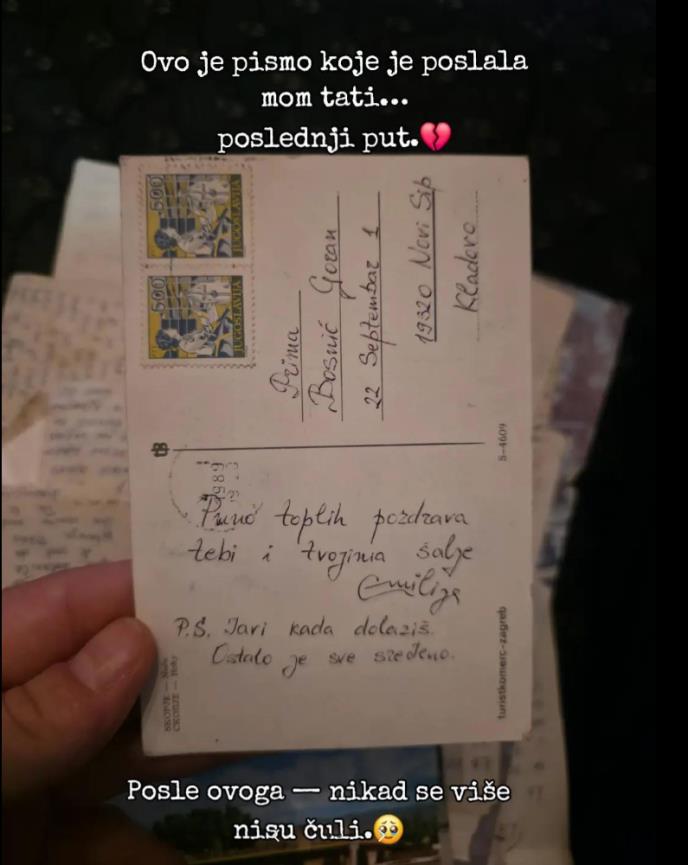 Ovo je pismo koje je poslala
mom tati...
poslednji put.💔
500
JUGOSLAVIJA
500
JUGOSLAVIJA
Prima
Bosnić Goran
22 Septembar 1
19320 Novi Sip
Kladovo
tB
S-4609
1989
Puno toplih pozdrava
tebi i tvojima šalje
Emilija
P.S. Javi kada dolaziš.
Ostalo je sve sređeno.
SKOPJE —
turistkomerc-zagreb
Posle ovoga — nikad se više
nisu čuli.🥹